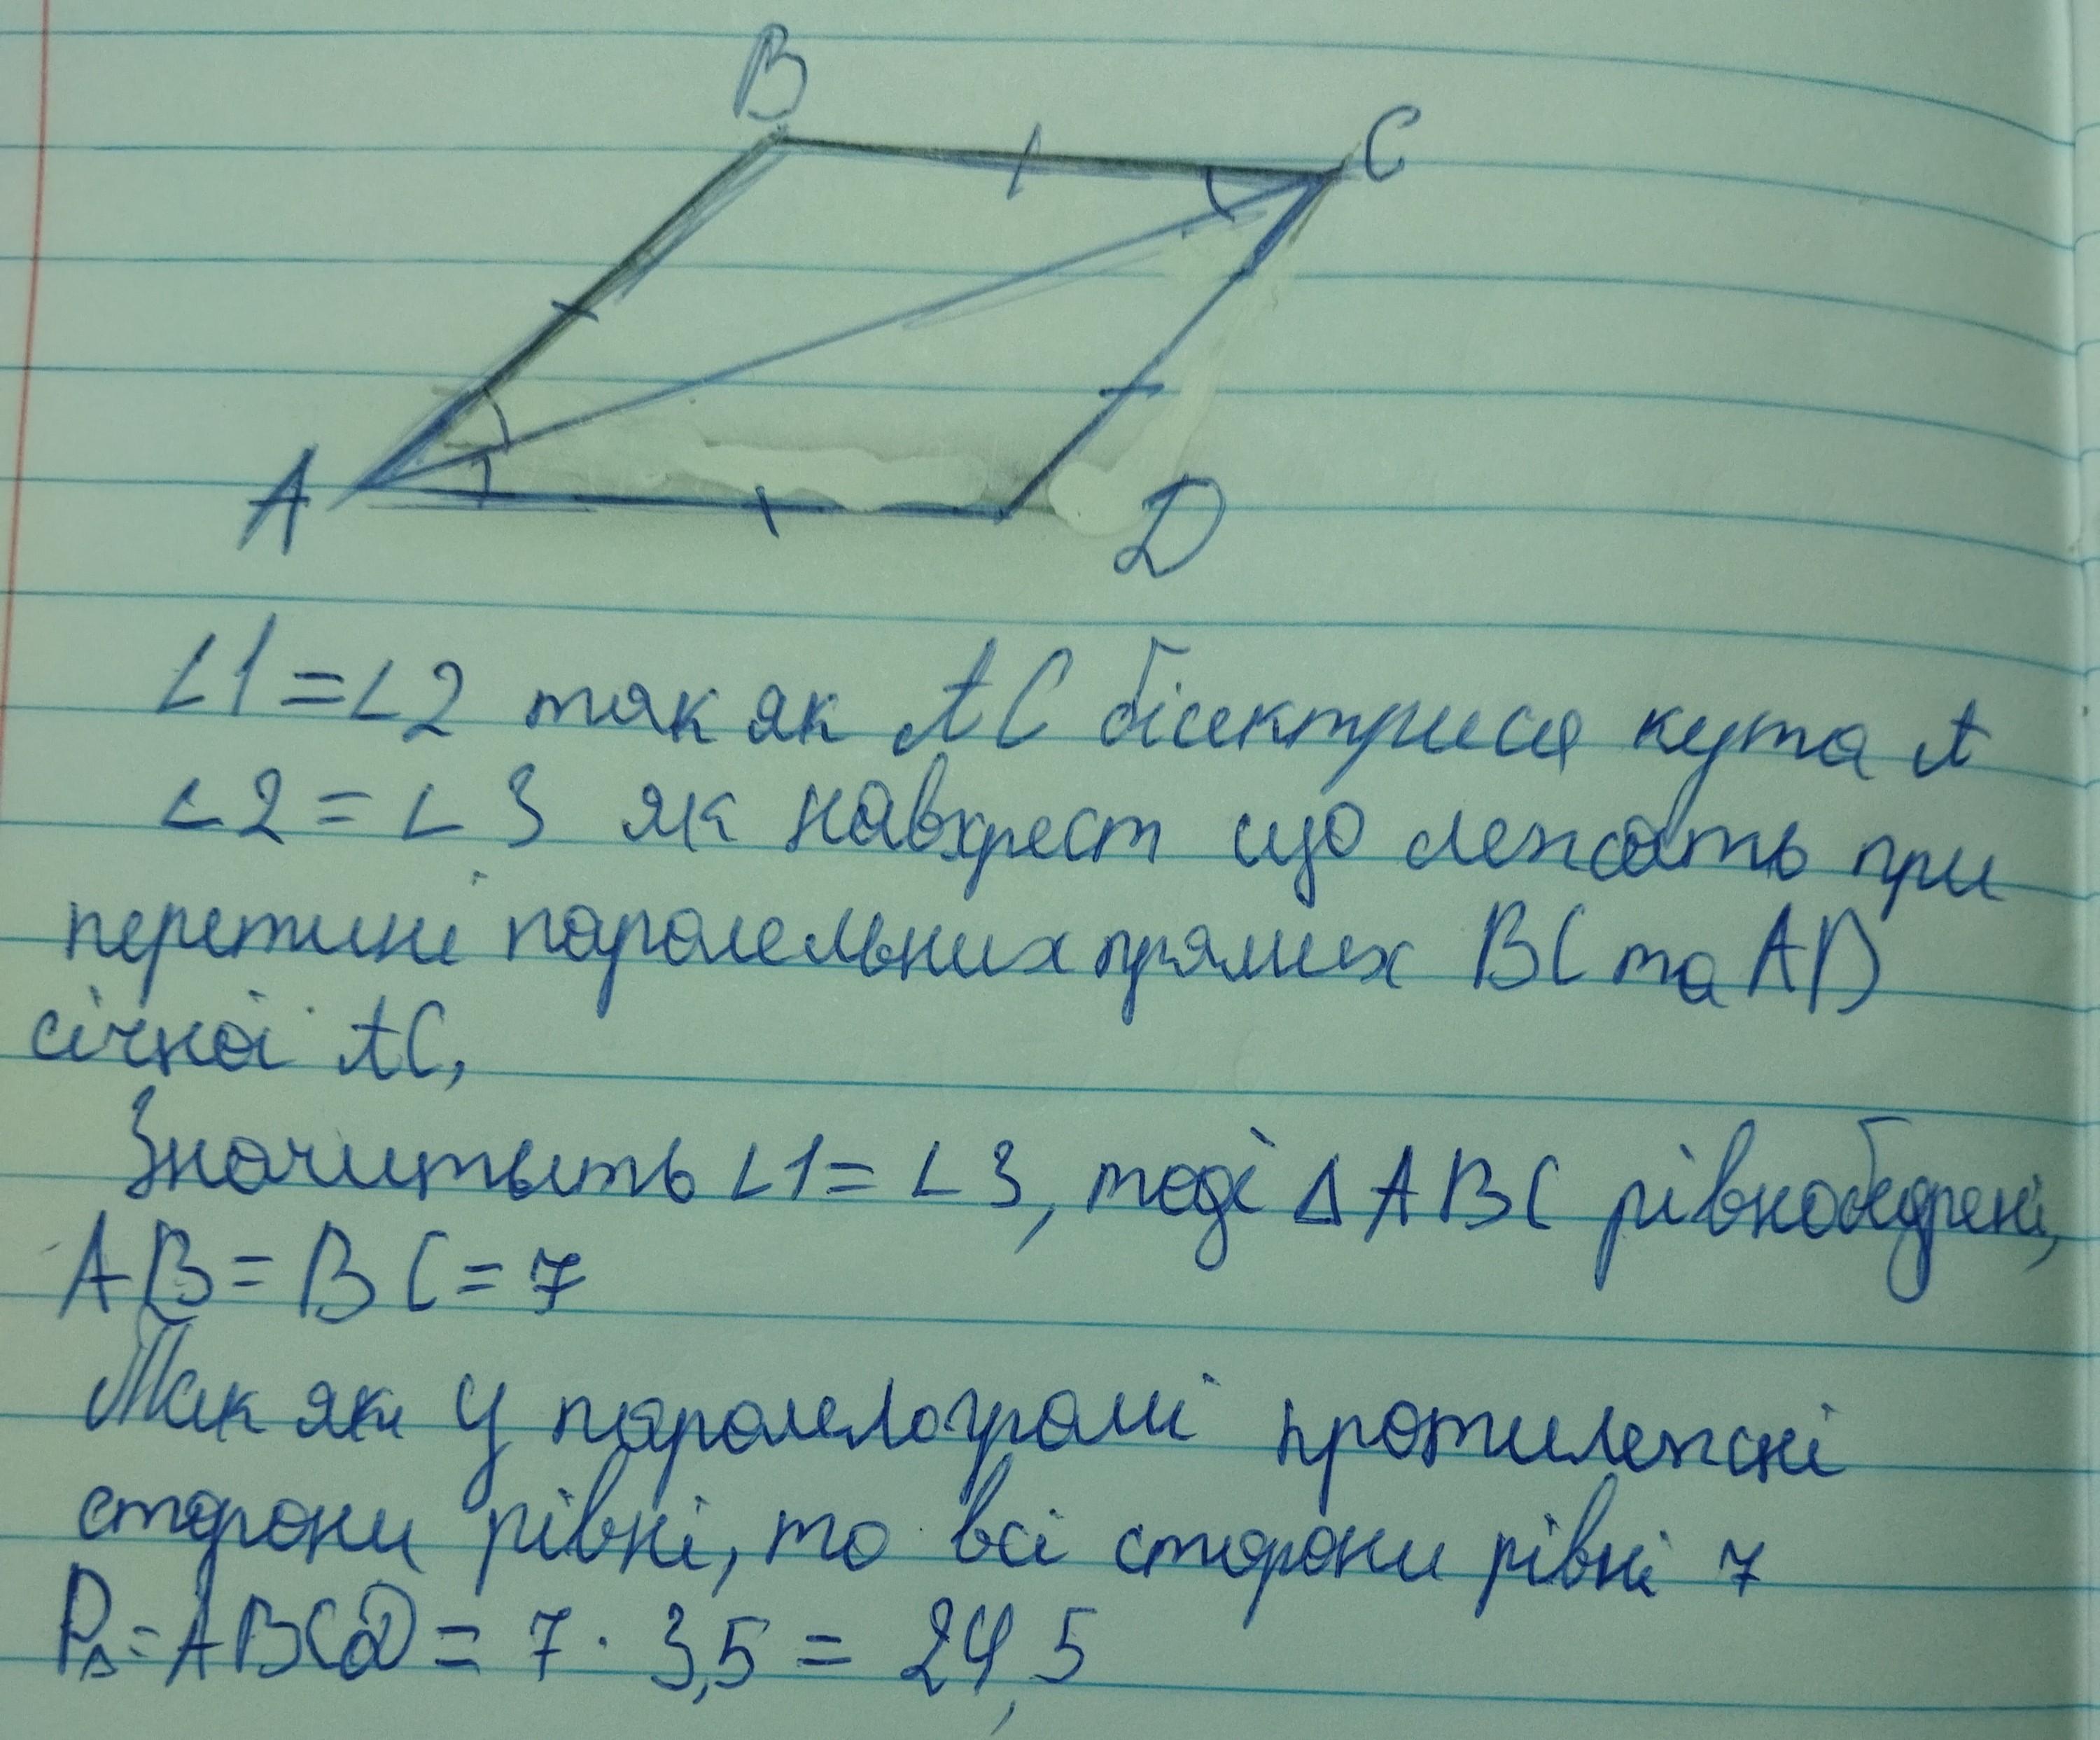 B
C
A
D
∠1=∠2 так як AC бісектриса кута A
∠2=∠3 як навхрест що лежать при
перетині паралельних прямих BC та AD
січної AC,
Значитыть ∠1=∠3, тоді ΔABC рівнобедрені,
AB=BC=7
Так як у паралелограмі протилежні
сторони рівні, то всі сторони рівні 7
P▵=ABCD=7·3,5=24,5